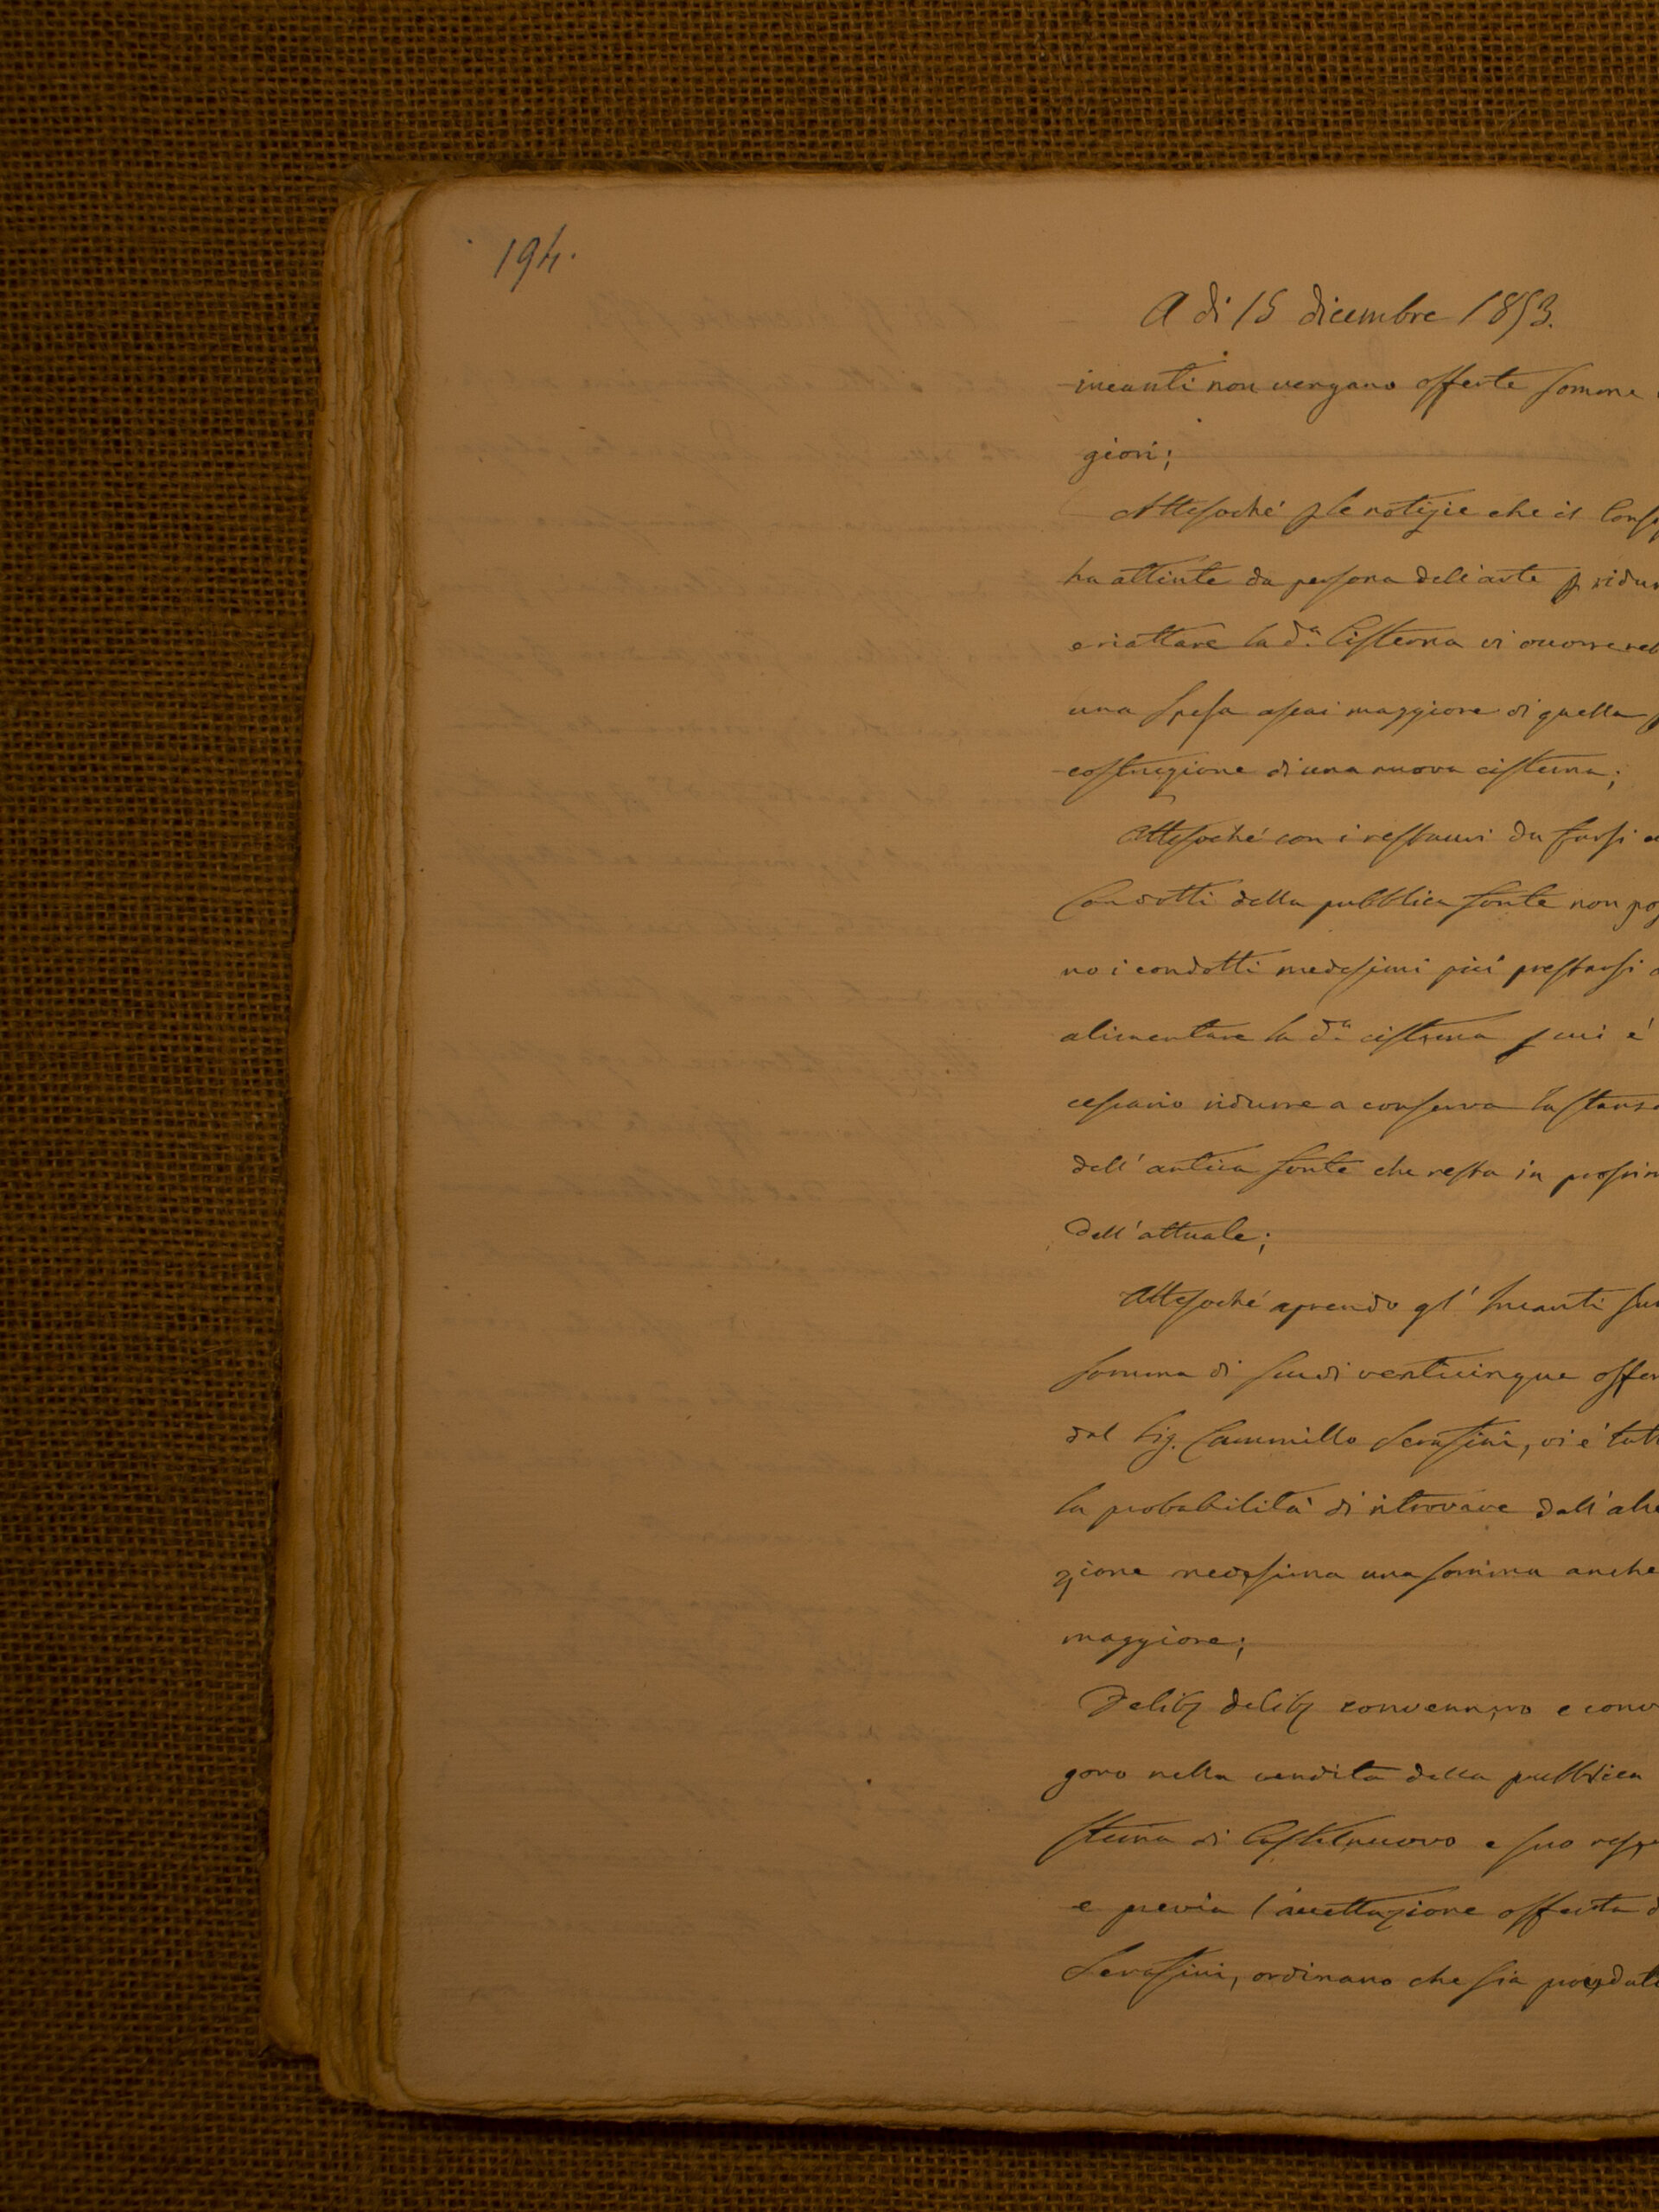 194.
A di 15 dicembre 1853.
incanti non vengano offerte somme
giori;
Attesoché p le notizie che il Cons
ha attinte da persona dell'arte p ridur
e riattare la d.a Cisterna vi occorrereb
una spesa assai maggiore di quella p
costruzione di una nuova cisterna;
Attesoché con i restauri da farsi a
Condotti della pubblica fonte non pos
no i condotti medesimi più prestarsi a
alimentare la d.a cisterna p cui é
cessario ridurre a conserva la stanza
dell'antica fonte che resta in prossim
dell'attuale;
Attesoché aprendo gl'Incanti su
somma di scudi venticinque offer
dal Sig. Cammillo Serafini, vi é tutt
la probabilità di ritrovare dall'alie
zione medesima una somma anche
maggiore;
Delib delib convennero e conv
gono nella vendita della pubblica
sterna di Castelnuovo e suo resp
e previa l'accettazione offerta d
Serafini, ordinano che sia proceduto